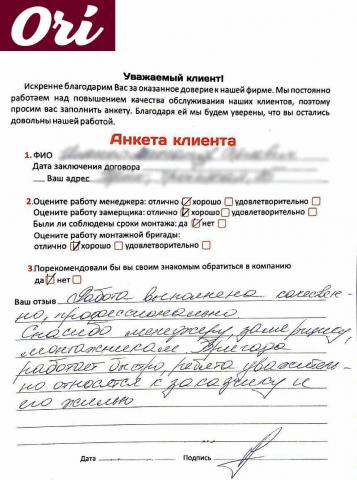 Ori
Уважаемый клиент!
Искренне благодарим Вас за оказанное доверие к нашей фирме. Мы постоянно
работаем над повышением качества обслуживания наших клиентов, поэтому
просим вас заполнить анкету. Благодаря ей мы будем уверены, что вы остались
довольны нашей работой.
Анкета клиента
1. ФИО
Дата заключения договора
Ваш адрес
2.Оцените работу менеджера: отлично хорошо удовлетворительно
Оцените работу замерщика: отлично хорошо удовлетворительно
Были ли соблюдены сроки монтажа: да нет
Оцените работу монтажной бригады:
отлично хорошо удовлетворительно
3.Порекомендовали бы вы своим знакомым обратиться в компанию
да нет
Ваш отзыв Работа выполнена качествен-
но, профессионально
Спасибо менеджеру, замерщику,
монтажникам. Бригада
работает быстро, ребята уважитель-
но относятся к заказчику и
его жилью
Дата Подпись